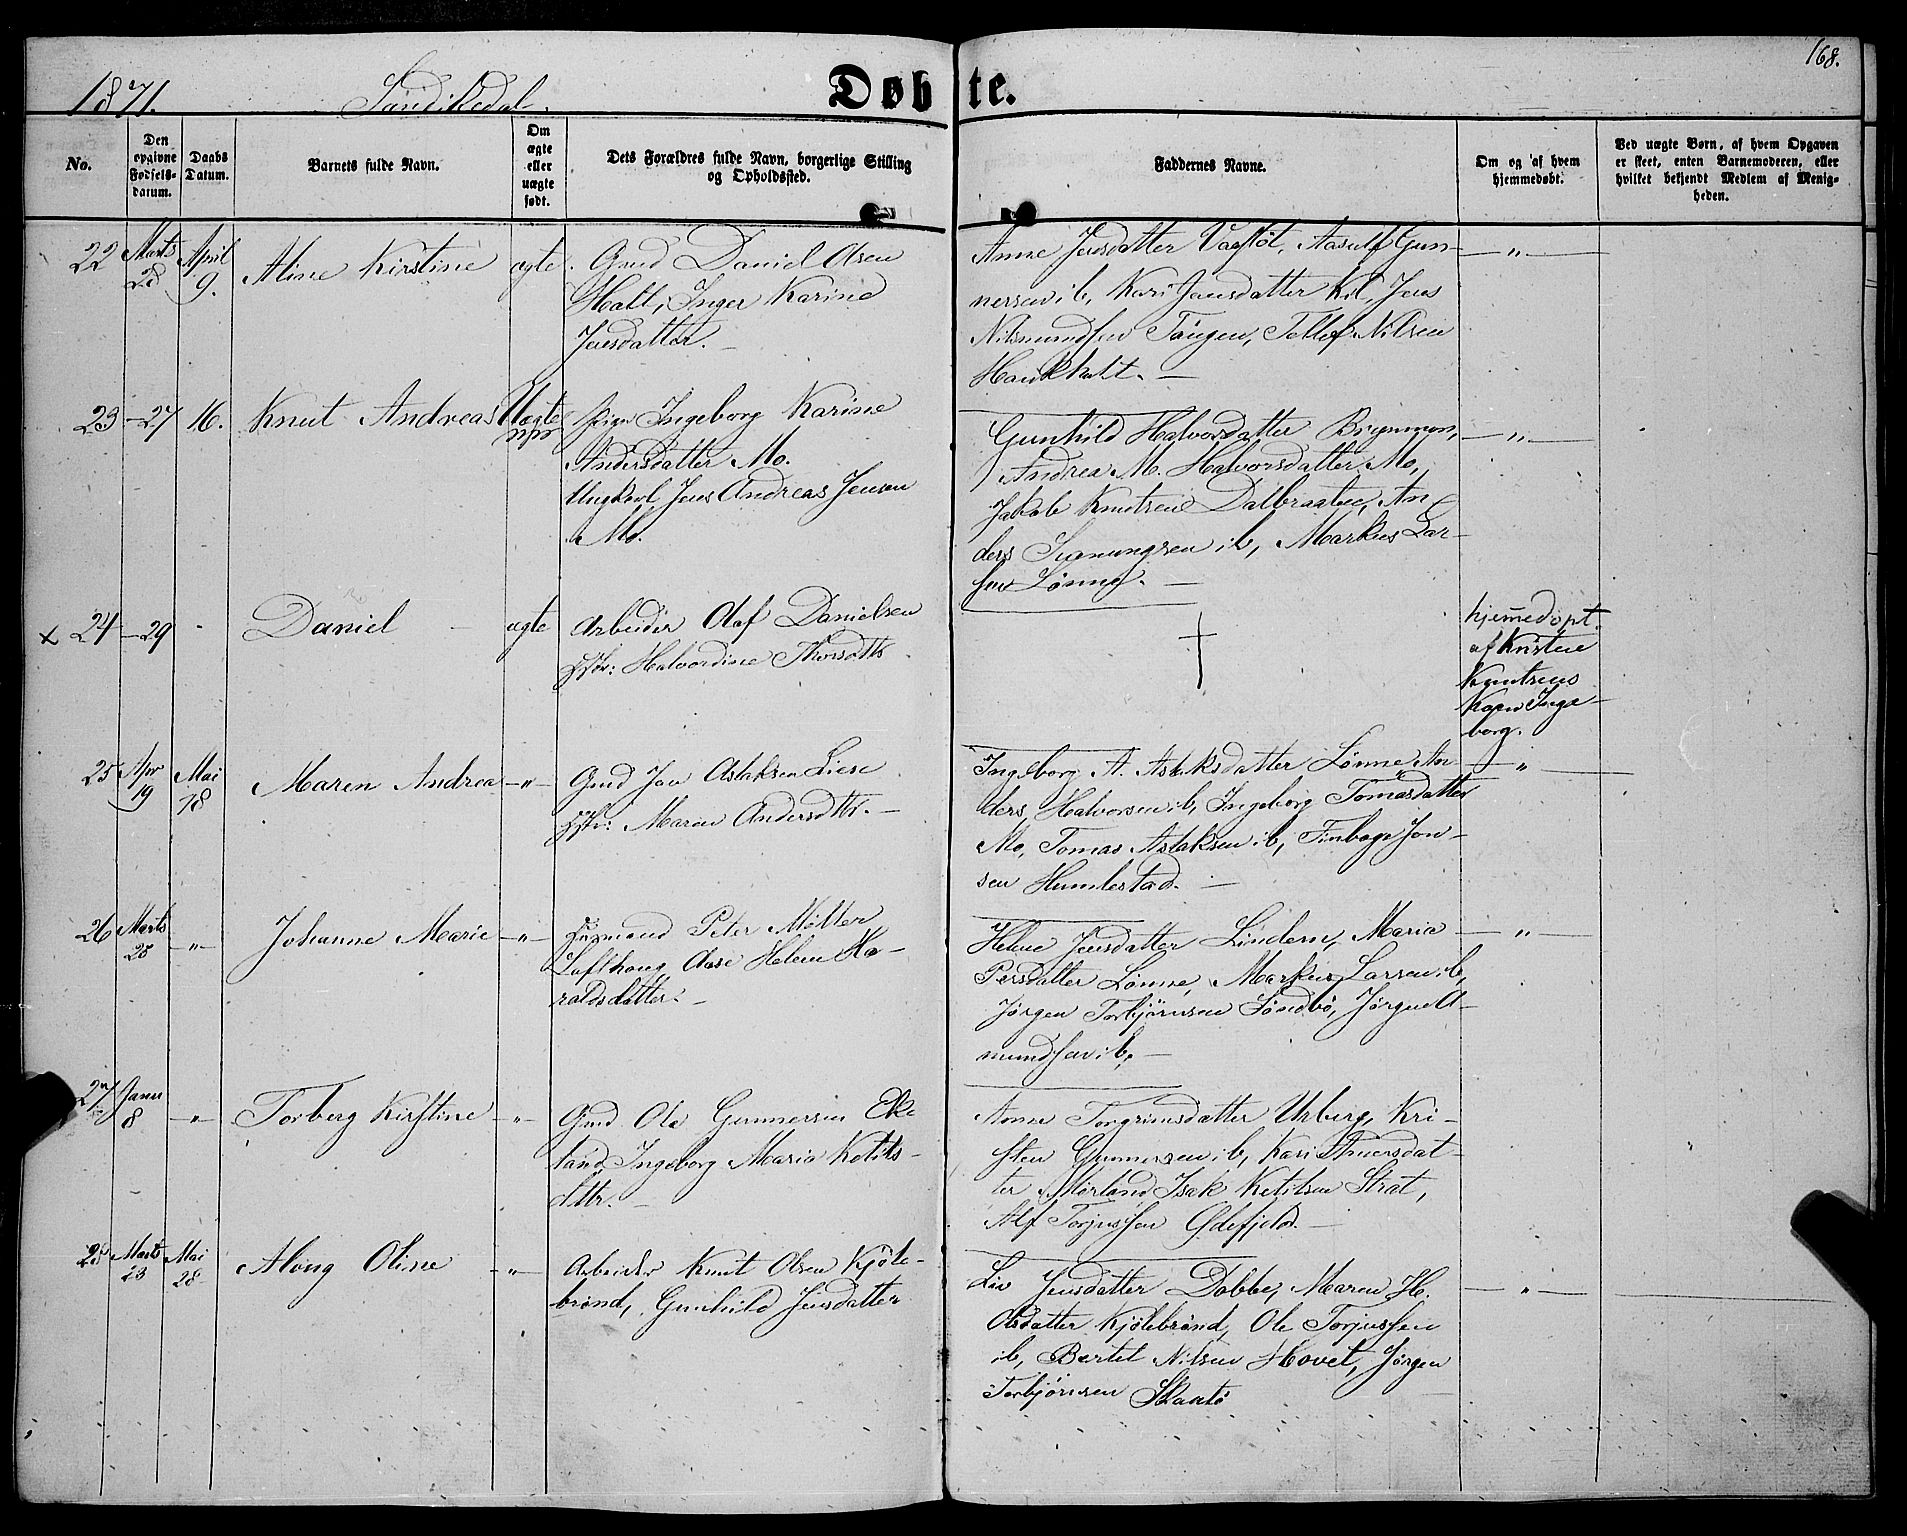 168.
1871. Sandikedal.
Døbte.
No.
Den opgivne Fødsels-datum.
Daabs Datum.
Barnets fulde Navn.
Om ægte eller uægte født.
Dets Forældres fulde Navn, borgerlige Stilling og Opholdssted.
Faddernes Navne.
Om og af hvem hjemmedøbt.
Ved uægte Børn, af hvem Opgaven er skeet, enten Barnemoderen, eller hvilket bekjendt Medlem af Menigheden.
22 Marts 28 April 9. Aline Kirstine ægte.
Gmd Daniel Olsen
Holt, Inger Karine
Jensdatter. —
Anne Jensdatter Aasulf Gun-
nersen ib, Kari Jensdatter Kil, Jens
Tangen, Tellef Nilsen
— " —
23 - 27 16. Knut Andreas Uægte
Pige Ingeborg Karine
Andersdatter Mo.
Ungkarl Jens Andreas Jensen
Mo.
Gunhild Halvorsdatter
Andrea M. Halvorsdatter Mo,
Jakob Knutsen Dalbraaten, An-
ders ib, Markus Lar-
sen Lønne. —
— " —
x 24 - 29 - Daniel - ægte
Arbeider Olaf Danielsen
Hstr: Halvordine Thorsdttr
†
hjemmedøpt
af Kristen
Knutsens
Kone Inge-
borg.
25 Apr 19 Mai 18 Maren Andrea - " -
Gmd Jon Aslaksen Liene
Hstr: Maren Andersdttr. —
Ingeborg A. Aslaksdatter Lønne An-
ders Halvorsen ib, Ingeborg Tomasdatter
Mo, Tomas Aslaksen ib, Finboge Jon-
sen Humlestad. —
— " —
26 Marts 25 - " - Johanne Marie - " -
Peter Møller
Lofthoug, Aase Helene Ha-
raldsdatter. —
Helene Jensdatter Lindem, Maria
Persdatter Lønne, Markus Larsen ib,
Jørgen Torbjørnsen Søndbø, Jørgen A-
mundsen ib, —
— " —
27 Janu 8 - " - Torberg Kirstine - " -
Gmd Ole Gunnersen Eke-
land, Ingeborg Maria Ketils-
dttr. —
Anne Torgrimsdatter Urberg, Kri-
sten Gunnersen ib, Kari
ter Mørland, Isak Ketilsen Strat,
Alf Torjussen Ødefjeld. —
28 Marts 23 Mai 28 Along Oline - " -
Arbeider Knut Olsen Kjøle-
brønd, Gunhild Jensdatter
Liv Jensdatter Dobbe, Maren H.
Olsdatter Kjølebrønd, Ole Torjussen
ib, Bertel Nilsen Hovet, Jørgen
Torbjørnsen Skaatø
— " —